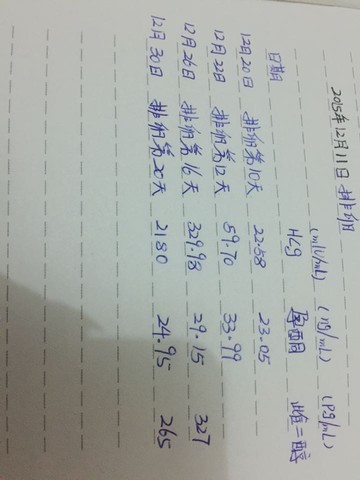 2015年12月11日 排卵日
(mIU/mL) (ng/mL) (Pg/mL)
日期 HCg 孕酮 雌二醇
12月20日 排卵第10天 22.58 23.05
12月22日 排卵第12天 59.70 33.99
12月26日 排卵第16天 329.98 29.15 327
12月30日 排卵第20天 2180 24.95 265